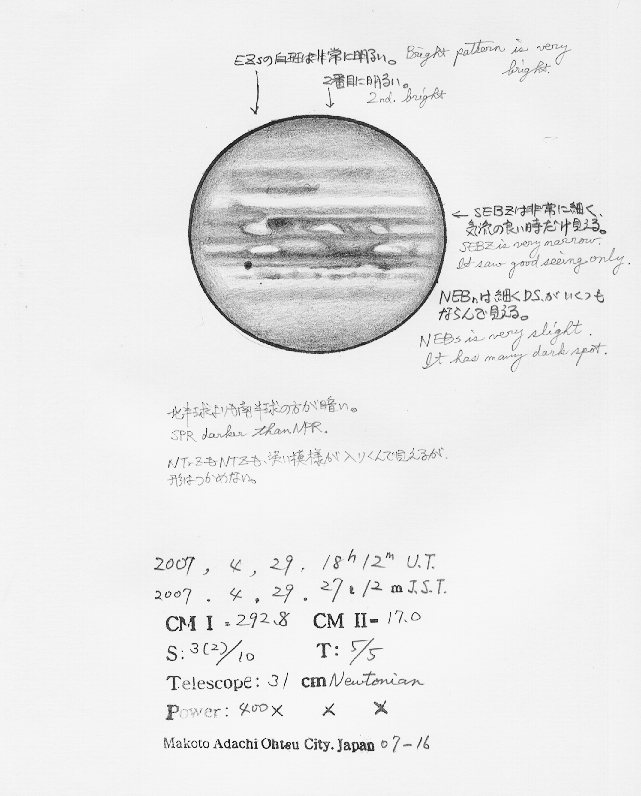 EZsの白斑は非常に明るい。 Bright pattern is very
bright.
2番目に明るい。
2nd. bright
← SEBZは非常に細く、
気流の良い時だけ見える。
SEBZ is very narrow.
It saw good seeing only.
NEBnは細くD.S.がいくつも
ならんで見える。
NEBs is very slight.
It has many dark spot.
北半球よりも南半球の方が暗い。
SPR darker than NPR.
NTrZもNTZも、淡い模様が入りくんで見えるが、
形はつかめない。
2007, 4, 29. 18h 12m U.T.
2007. 4. 29. 27: 12 m J.S.T.
CM I = 292.8 CM II= 17.0
S: 3(2)/10 T: 5/5
Telescope: 31 cm Newtonian
Power: 400× × ×
Makoto Adachi Ohtsu City. Japan 07-16